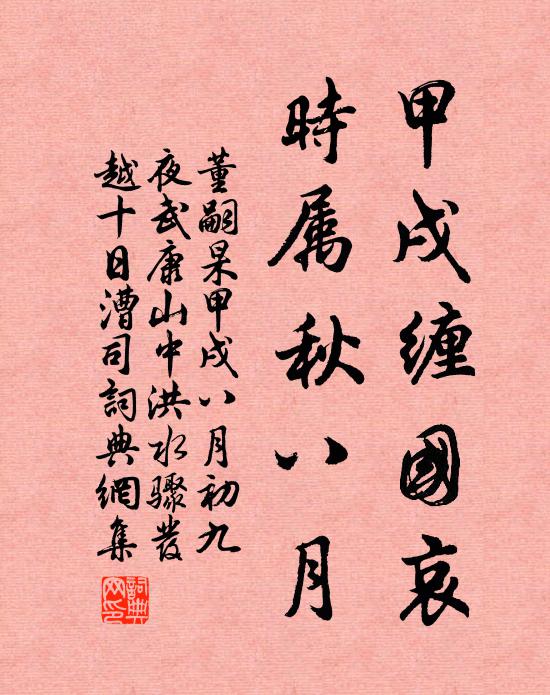 甲戌缠國哀
時属秋八月
董嗣杲甲戌八月初九
夜武康山中洪水驟發
越十日漕司詞典網集
詞典網印